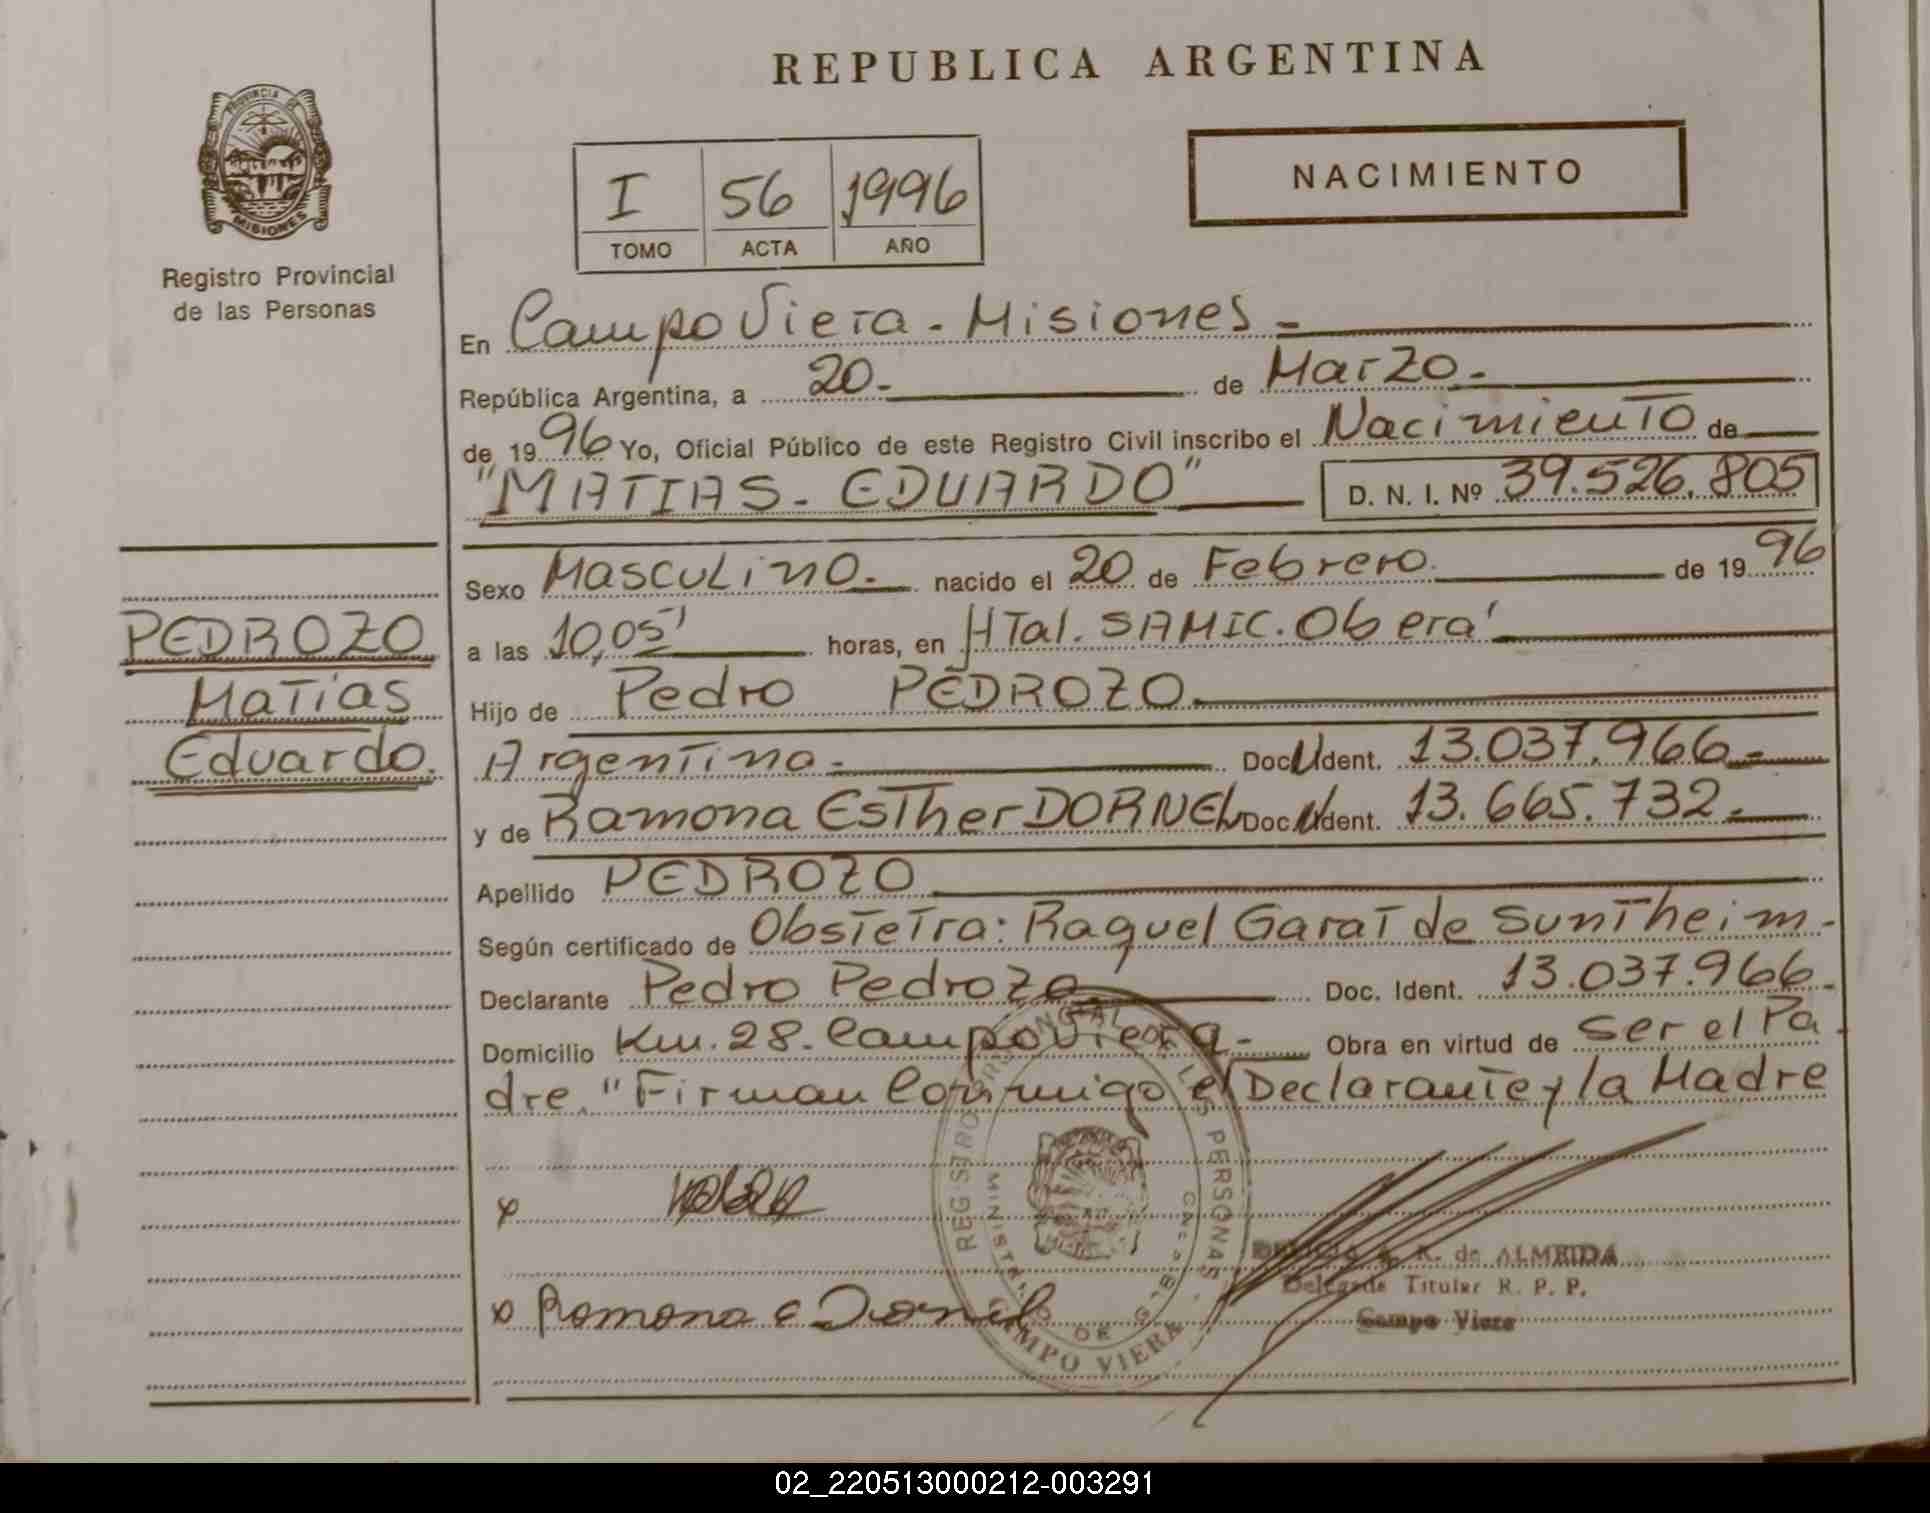 REPUBLICA ARGENTINA
PROVINCIA DE
MISIONES
Registro Provincial
de las Personas
I 56 1996
TOMO ACTA AÑO
NACIMIENTO
En Campo Viera - Misiones -
República Argentina, a 20- de Marzo-
de 1996 Yo, Oficial Público de este Registro Civil inscribo el Nacimiento de
"MATIAS - EDUARDO" D. N. I. Nº 39.526.805
Sexo Masculino- nacido el 20 de Febrero de 1996
PEDROZO
Matias
Eduardo.
a las 10,05' horas, en HTal. SAMIC. Oberá
Hijo de Pedro PEDROZO
Argentino- Doc U Ident. 13.037.966-
y de Ramona Esther DORNEL Doc U Ident. 13.665.732-
Apellido PEDROZO
Según certificado de Obstetra: Raquel Garat de Suntheim-
Declarante Pedro Pedrozo Doc. Ident. 13.037.966-
Domicilio Km. 28. Campo Viera- Obra en virtud de ser el Pa
dre. "Firman Conmigo el Declarante y la Madre
x
x Ramona E Dornel
REGISTRO PROVINCIAL DE LAS PERSONAS
MINISTERIO DE
CAMPO VIERA
R. de ALMEIDA
Delegada Titular R. P. P.
Campo Viera
02_220513000212-003291